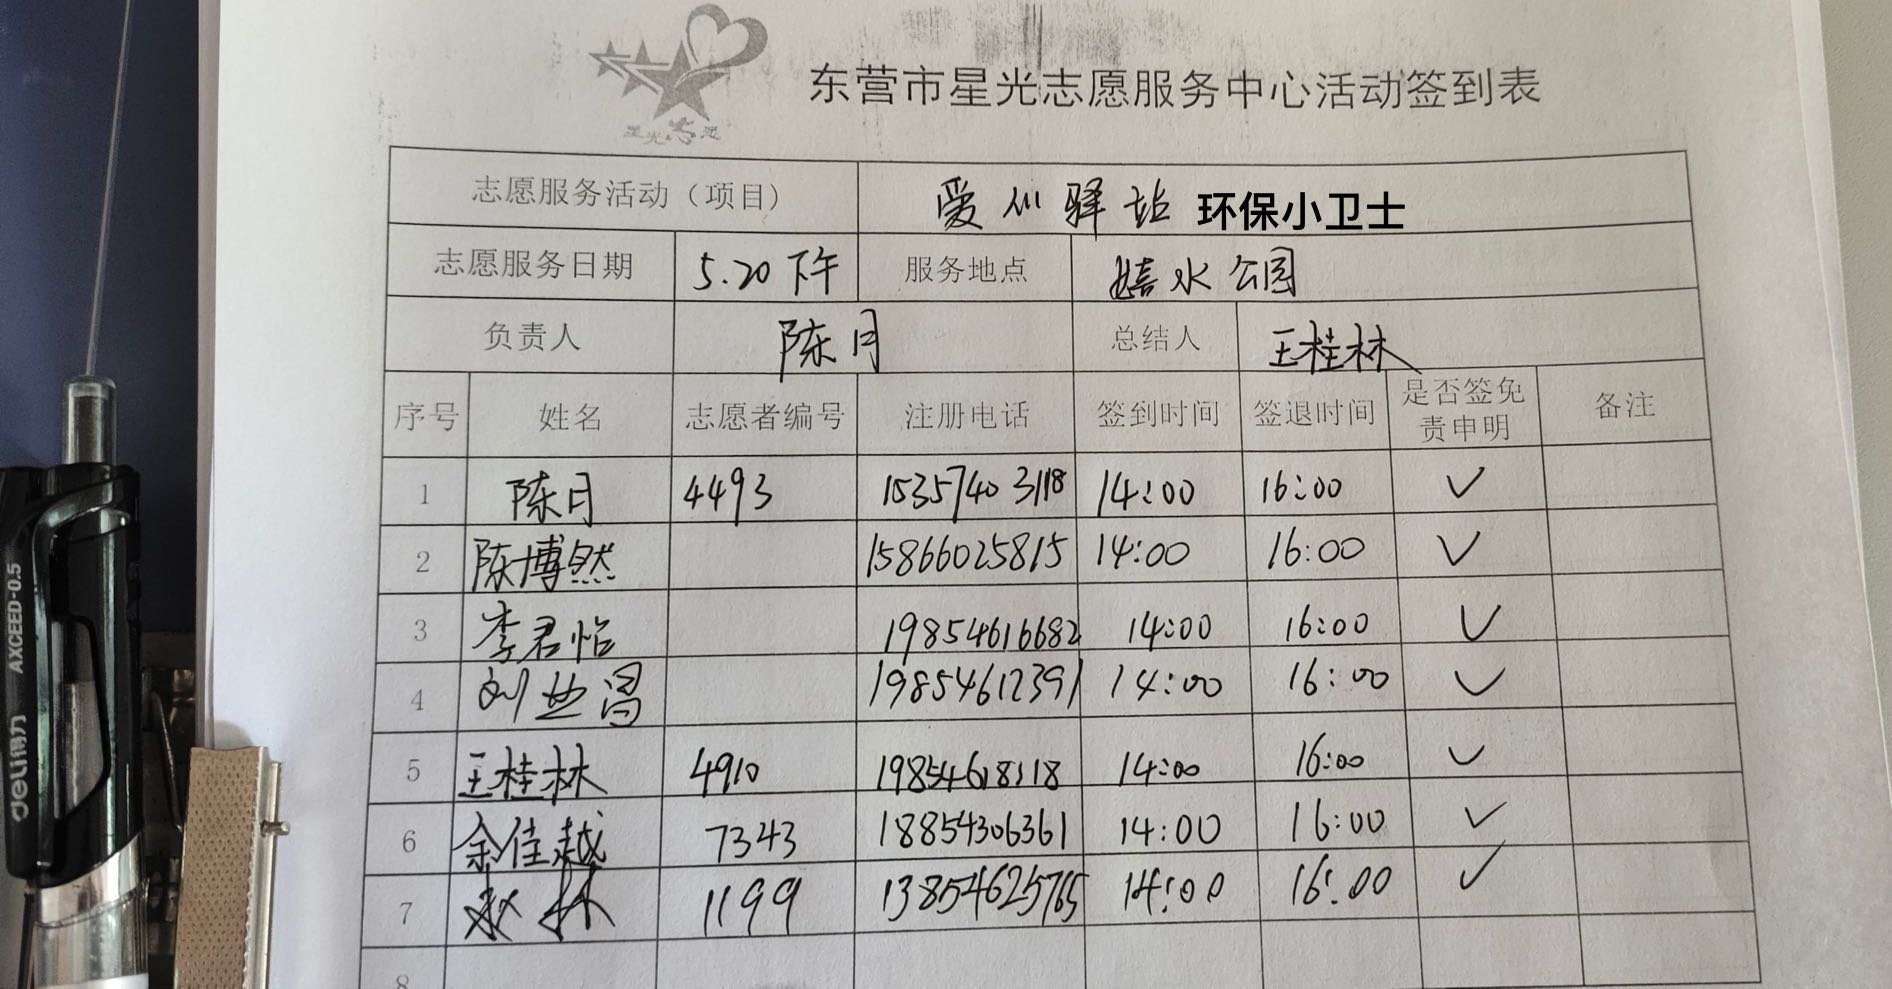 星光志愿
东营市星光志愿服务中心活动签到表
志愿服务活动（项目） 爱心驿站 环保小卫士
志愿服务日期 5.20下午 服务地点 嬉水公园
负责人 陈月 总结人 王桂林
序号 姓名 志愿者编号 注册电话 签到时间 签退时间 是否签免责申明 备注
1 陈月 4493 15357403118 14:00 16:00 ✓
2 陈博然 15866025815 14:00 16:00 ✓
3 李君怡 19854616682 14:00 16:00 ✓
4 刘 昌 19854612391 14:00 16:00 ✓
5 王桂林 4910 19854618118 14:00 16:00 ✓
6 余佳越 7343 18854306361 14:00 16:00 ✓
7 林 1199 13854625765 14:00 16:00 ✓
8
deli得力 AXCEED·0.5